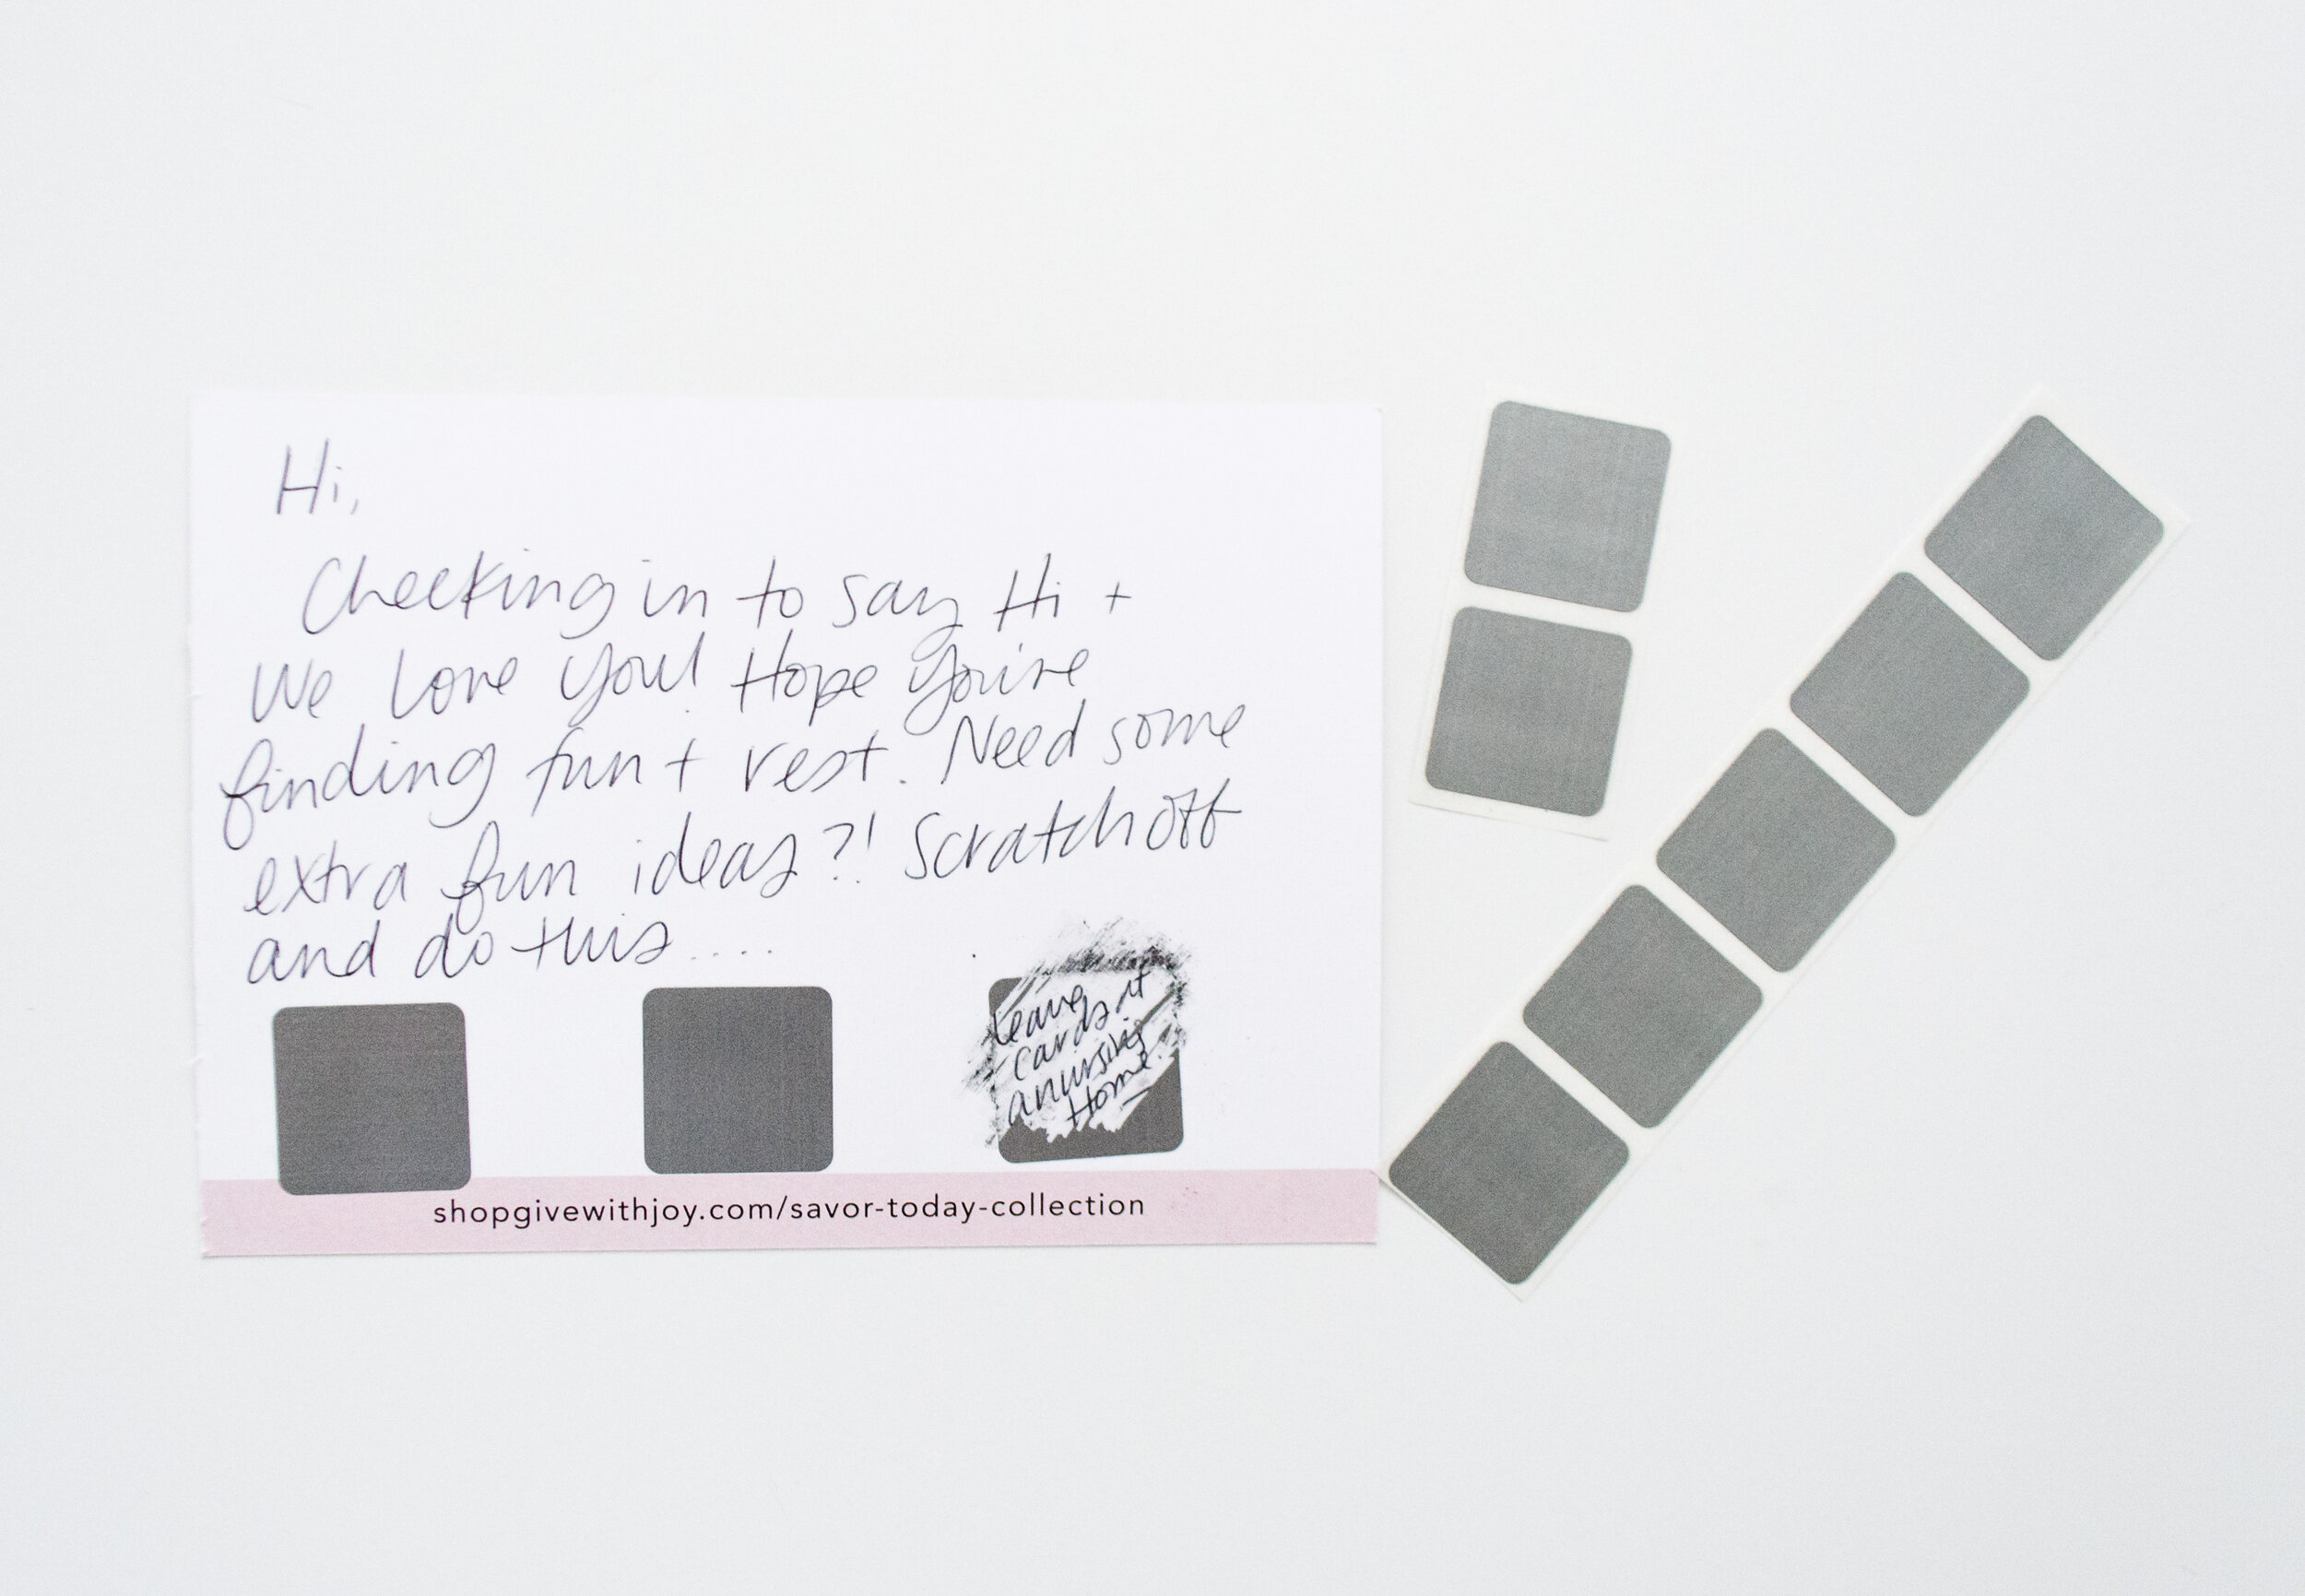 Hi,
Checking in to say Hi +
We love you! Hope you're
finding fun + rest. Need some
extra fun ideas?! Scratch off
and do this....
Leave
cards at
a nursing
Home.
shopgivewithjoy.com/savor-today-collection